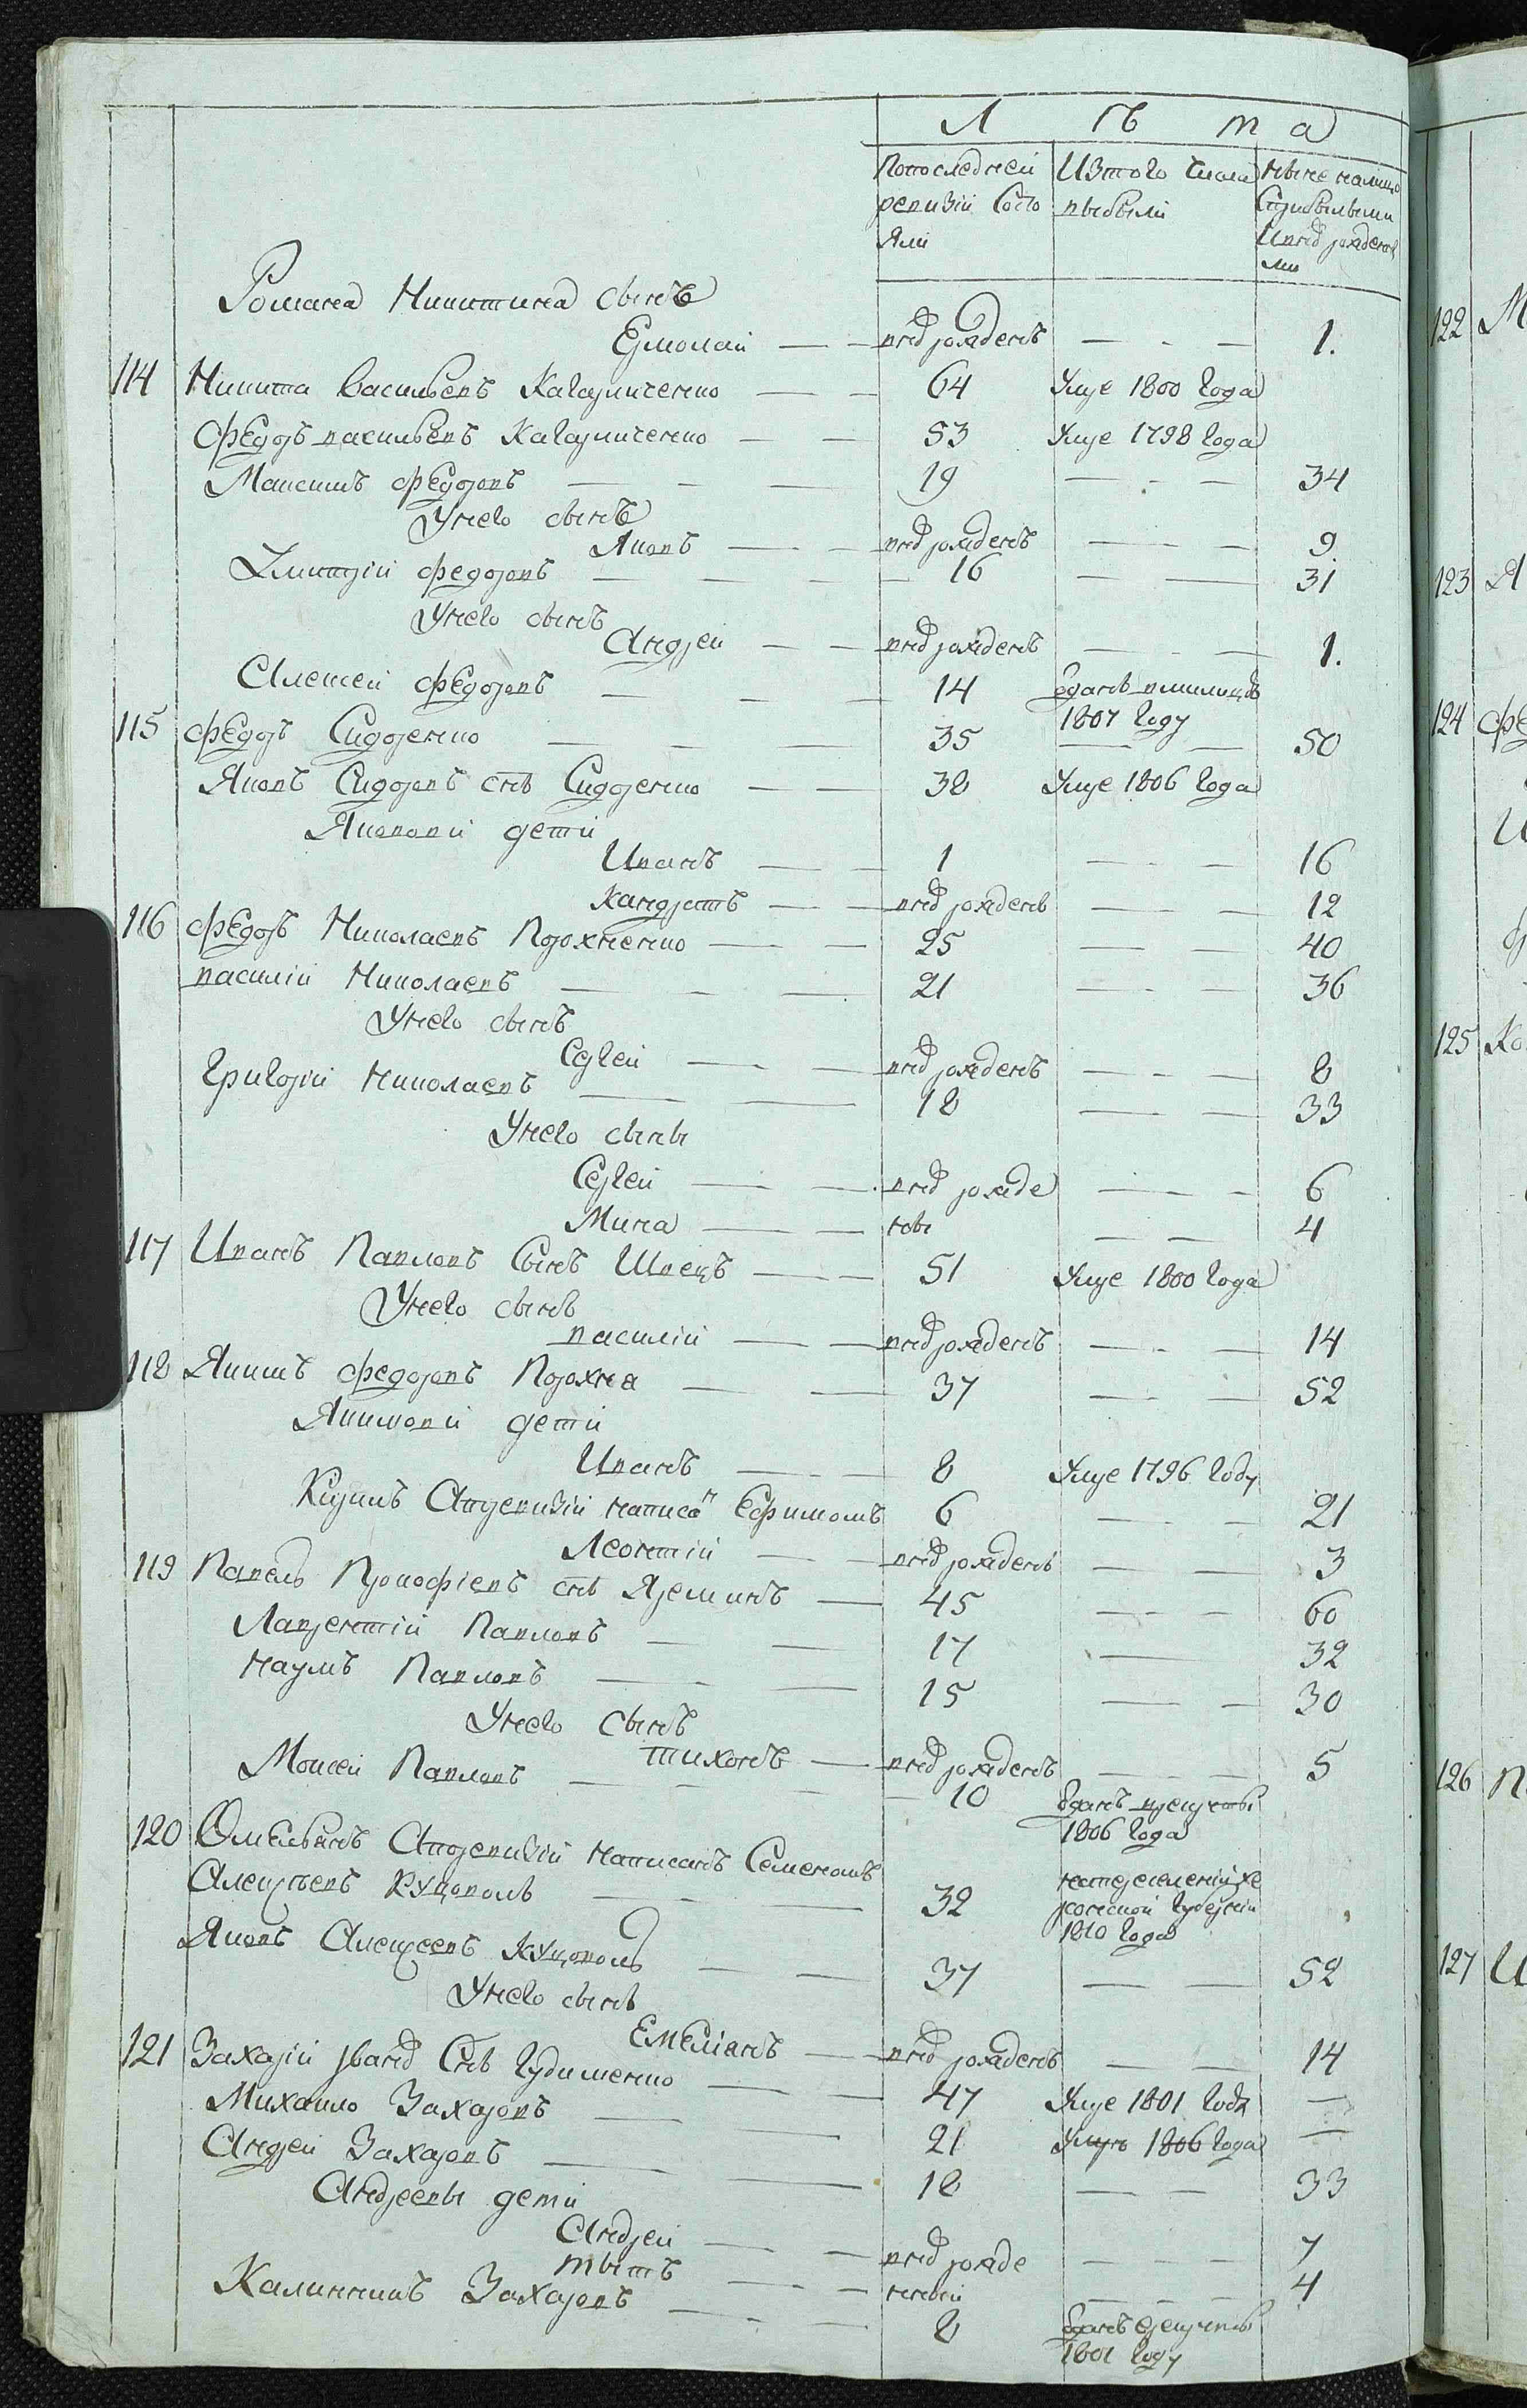 Л ѣ т а
Попоследней ревизiи Состояли
Изтого Числа выбыли
Ныне налицо Сприбылыми Иновърожденными
Романа Никитина сынъ
Ермолай — новърожденъ — 1.
114 Никита Васильевъ Кагарличенко — 64 Умре 1800 года
Федоръ василевъ Кагарличенко — 53 Умре 1798 года
Максимъ Федоровъ — 19 — 34
Унего сынъ
Яковъ — новърожденъ — 9.
Дмитрiй федоровъ — 16 — 31
Унего сынъ
Андрей — новърожденъ — 1.
Алексей Федоровъ — 14 отданъ вмилицiю
1807 году
115 Федоръ Сидоренко — 35 — 50
Яковъ Сидоровъ снъ Сидоренко — 38 Умре 1806 года
Якововы дети
Иванъ — 1 — 16
Кандратъ — новърожденъ — 12
116 Федоръ Николаевъ Порохненко — 25 — 40
василiй Николаевъ — 21 — 36
Унего сынъ
Сергей — новърожденъ — 8
Григорiй Николаевъ — 18 — 33
Унего сыны
Сергей — новърожде — 6
Мина — ны — 4
117 Иванъ Павловъ Сынъ Швецъ — 51 Умре 1800 года
Унего сынъ
василiй — новърожденъ — 14
118 Якимъ федоровъ Порохня — 37 — 52
Якимовы дети
Иванъ — 8 Умре 1796 году
Кузма Апоревизiи написанъ Ефимомъ 6 — 21
Леонтiй — новърожденъ — 3
119 Павелъ Прокофiевъ снъ Яремикъ — 45 — 60
Лаврентiй Павловъ — 17 — 32
Наумъ Павловъ — 15 — 30
Унего Сынъ
тихонъ — новърожденъ — 5
Моисей Павловъ — 10 отданъ врекруты
1806 года
120 Омельянъ Апоревизiи написанъ Семеномъ
Алексѣевъ Куцоволъ — 32 напереселенiи Хе
рсонской губернiи
1810 года
Яковъ Алексеевъ Куцоволъ — 37 — 52
Унего сынъ
Емелiянъ — новърожденъ — 14
121 Захарiй Iвановъ Снъ Гудименко — 47 Умре 1801 года —
Михаило Захаровъ — 21 Умре 1806 года —
Андрей Захаровъ — 18 — 33
Андреевы дети
Андрей — новърожде — 7
титъ — нный — 4
Калинникъ Захаровъ — 8 отданъ врекруты
1801 году
122
123
124 Фе
125 Ко
126
127